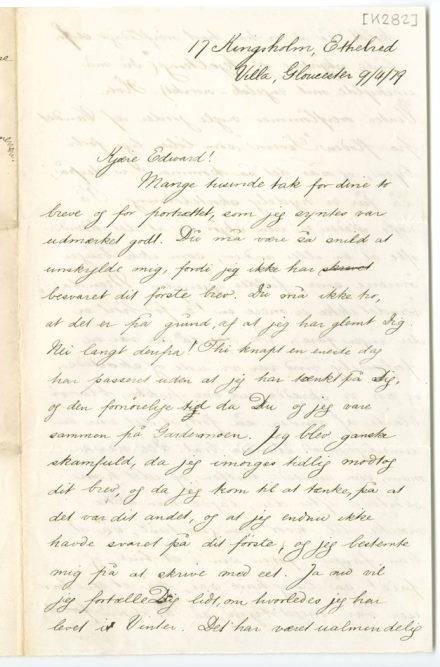 [K282]
17 Kingsholm, Ethelred
Villa, Gloucester 9/4/79
Kjære Edward!
Mange tusinde tak for dine to
breve og for portrættet, som jeg syntes var
udmærket godt. Du må være så snild at
undskylde mig, fordi jeg ikke har
besvaret dit første brev. Du må ikke tro,
at det er på grund af at jeg har glemt Dig.
Nei langt derfra! Thi knapt en eneste dag
har passeret uden at jeg har tænkt på Dig,
og den fornøielige tid da Du og jeg vare
sammen på Gardermoen. Jeg blev ganske
skamfuld, da jeg imorges tidlig modtog
dit brev, og da jeg kom til at tænke, på at
det var dit andet, og at jeg endnu ikke
havde svaret på dit første, og jeg bestemte
mig på at skrive med eet. Ja nu vil
jeg fortælle Dig lidt, om hvorledes jeg har
levet i Vinter. Det har været ualmindelig